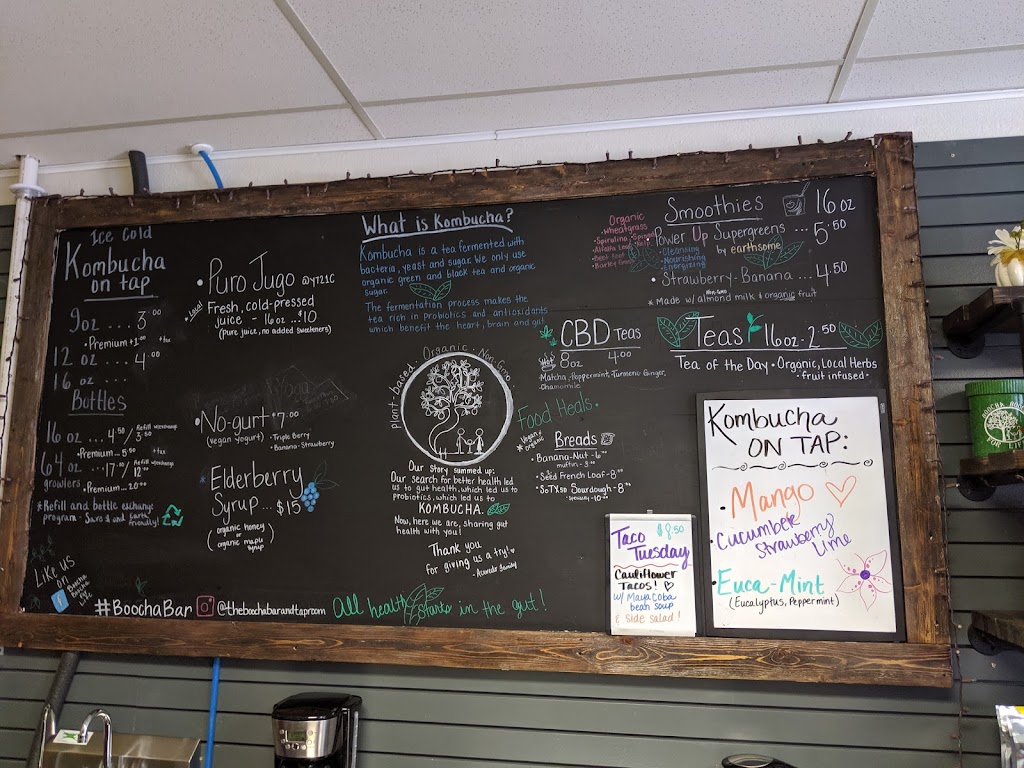 Ice Cold
Kombucha
on tap
9oz ... 3.00
• Premium +1.00 + tax
12 oz ... 4.00
16 oz ...
Bottles
16 oz ... 4.50 / Refill w/exchange 3.50
• Premium... 5.50
64 oz ... 17.00 / Refill w/exchange
growlers
• Premium... 20.00
*Refill and bottle exchange
program - Save $ and Earth
friendly!
Like us
on
#BoochaBar @theboochabarandtaproom
• Puro Jugo @yt21c
• Local Fresh, cold-pressed
juice - 16oz...$10
(Pure juice, no added sweeteners)
• No-gurt $7.00
(vegan yogurt) • Triple Berry
• Banana-Strawberry
Elderberry
Syrup... $15
(organic honey
or
organic maple
syrup)
What is Kombucha?
Kombucha is a tea fermented with
bacteria, yeast and sugar. We only use
organic green and black tea and organic
sugar.
The fermentation process makes the
tea rich in Probiotics and antioxidants
which benefit the heart, brain and gut
Plant-based • Organic • Non-GMO
Our story summed up:
Our search for better health led
us to gut health, which led us to
probiotics, which led us to
KOMBUCHA.
Now, here we are, sharing gut
health with you!
Thank you
for giving us a try!
All health starts in the gut!
Organic
• Wheatgrass
• Spirulina
Smoothies 16oz
• Power Up Supergreens ... 5.50
by earthsome
• Cleansing
• Nourishing
• Energizing
• Strawberry-Banana... 4.50
* Made w/ almond milk & organic fruit
CBD Teas
8oz 4.00
• Matcha, Peppermint, Turmeric Ginger,
Chamomile
Teas 16oz - 2.50
Tea of the Day • Organic, Local Herbs
• fruit infused •
Food Heals •
* Vegan &
organic
Breads
• Banana-Nut - 6.00
muffin - 3.00
• Seed French Loaf - 8.00
• SoTX50 Sourdough - 8.00
Taco $8.50
Tuesday
Cauliflower
Tacos!
w/ Mayacoba
bean soup
& side salad!
Kombucha
ON TAP:
• Mango
• Cucumber
Strawberry
Lime
• Euca-Mint
(Eucalyptus, Peppermint)